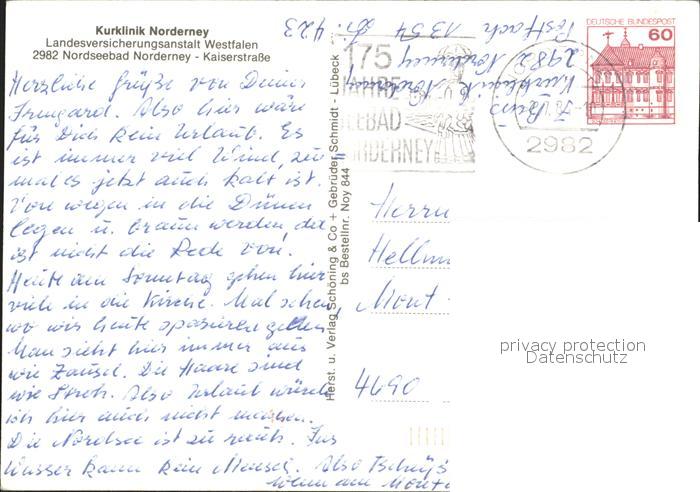 Kurklinik Norderney
Landesversicherungsanstalt Westfalen
2982 Nordseebad Norderney - Kaiserstraße
Herzliche Grüße von Deiner
Irmgard. Also hier wäre
für Dich kein Urlaub. Es
ist immer viel Wind, zu-
mal es jetzt auch kalt ist.
Von wegen in die Dünen
legen u. braun werden, da
ist nicht die Rede von!
Heute am Sonntag gehen hier
viele in die Kirche. Mal sehen,
wo wir heute spazieren gehen.
Man sieht hier immer aus
wie Zausel. Die Haare sind
wie Stroh. Also Urlaub würde
ich hier auch nicht machen.
Die Nordsee ist zu rauh. Ins
Wasser kann kein Mensch. Also Tschüß
Wenn am
Herst. u. Verlag Schöning & Co + Gebrüder Schmidt - Lübeck
bs Bestellnr. Noy 844
Kurklinik Norderney
2982 Norderney
Postfach 1354 Zi. 423
175
JAHRE
SEEBAD
NORDERNEY
2982
DEUTSCHE BUNDESPOST
60
Herrn
Hellm
Mont
4690
privacy protection
Datenschutz